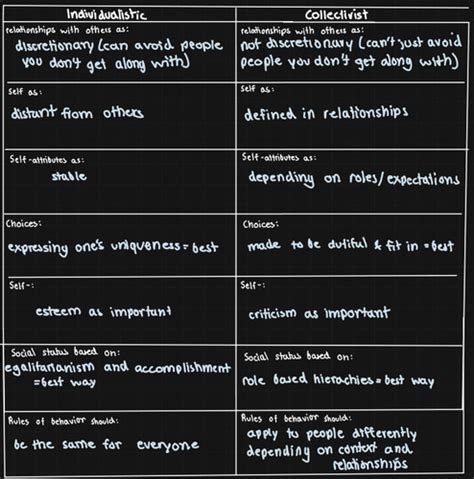 Individualistic
Collectivist
relationships with others as:
discretionary (can avoid people
you don't get along with)
relationships with others as:
not discretionary (can't just avoid
people you don't get along with)
Self as:
distant from others
Self as:
defined in relationships
Self-attributes as:
stable
Self-attributes as:
depending on roles/expectations
Choices:
expressing one's uniqueness = best
Choices:
made to be dutiful & fit in = best
Self-:
esteem as important
Self-:
criticism as important
Social status based on:
egalitarianism and accomplishment
=best way
Social status based on:
role based hierachies = best way
Rules of behavior should:
be the same for everyone
Rules of behavior should:
apply to people differently
depending on context and
relationships